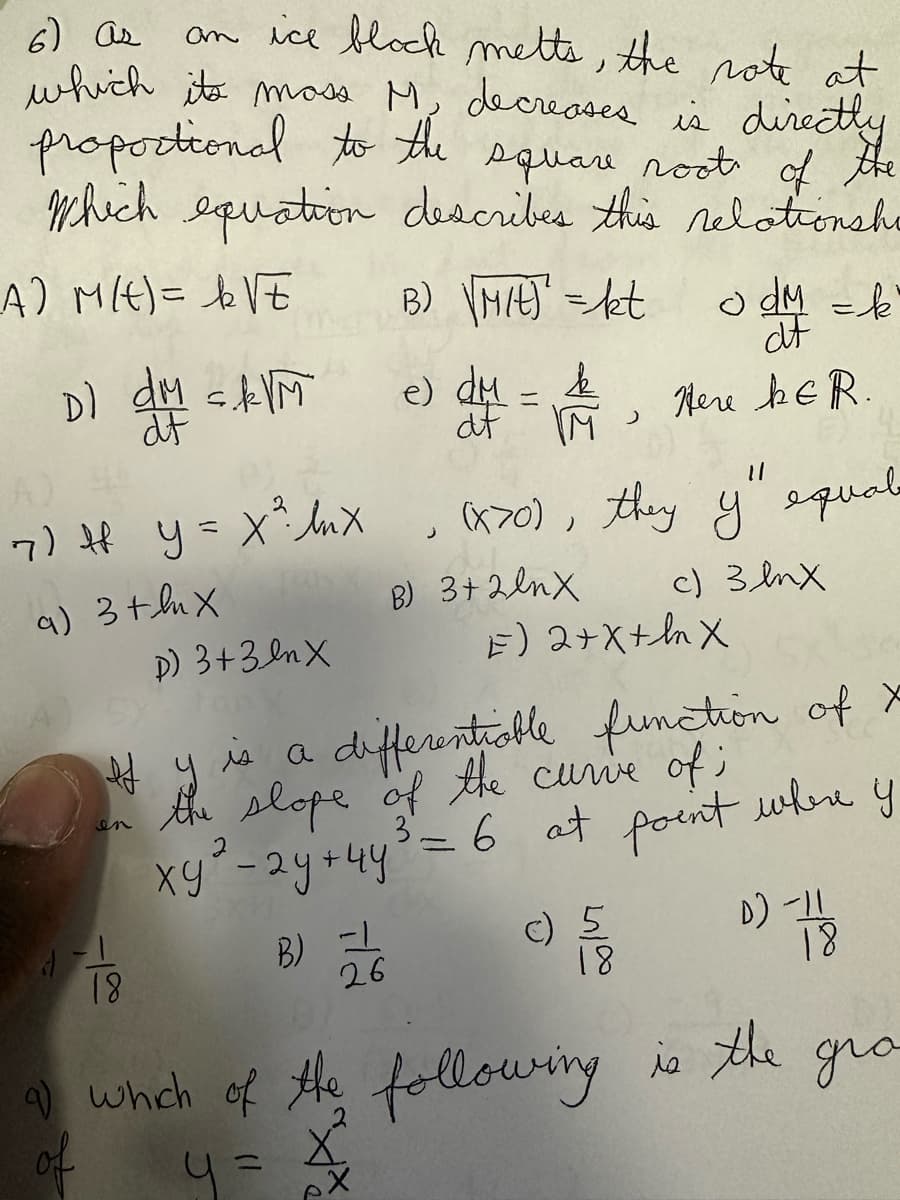 6) as an ice block melts, the rate at
which its mass M, decreases is directly
proportional to the square root of the
Which equation describes this relationshi
A) M(t)= k√t B) √M(t) = kt c) dM/dt = k
D) dM/dt = k√M e) dM/dt = k/√M , Here k∈R.
7) If y = x² lnx , (x>0), they y" equals
a) 3+lnx B) 3+2lnx c) 3lnx
D) 3+3lnx E) 2+x+lnx
If y is a differentiable function of x
en the slope of the curve of;
xy²-2y+4y³=6 at point where y
-1/18 B) -1/26 c) 5/18 D) -11/18
9) whch of the following is the gra
of y = x²/eˣ